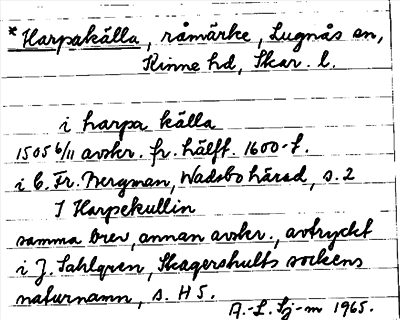 * Harpakälla, råmärke, Lugnås sn,
Kinne hd, Skar. l.
i harpa källa
1505 6/11 avskr. fr. hälft. 1600-t.
i C. Fr. Bergman, Wadsbo härad, s. 2
I Harpekullin
samma brev, annan avskr., avtryckt
i J. Sahlgren, Skagershults sockens
naturnamn, s. H 5.
A.-L. Sj-m 1965.